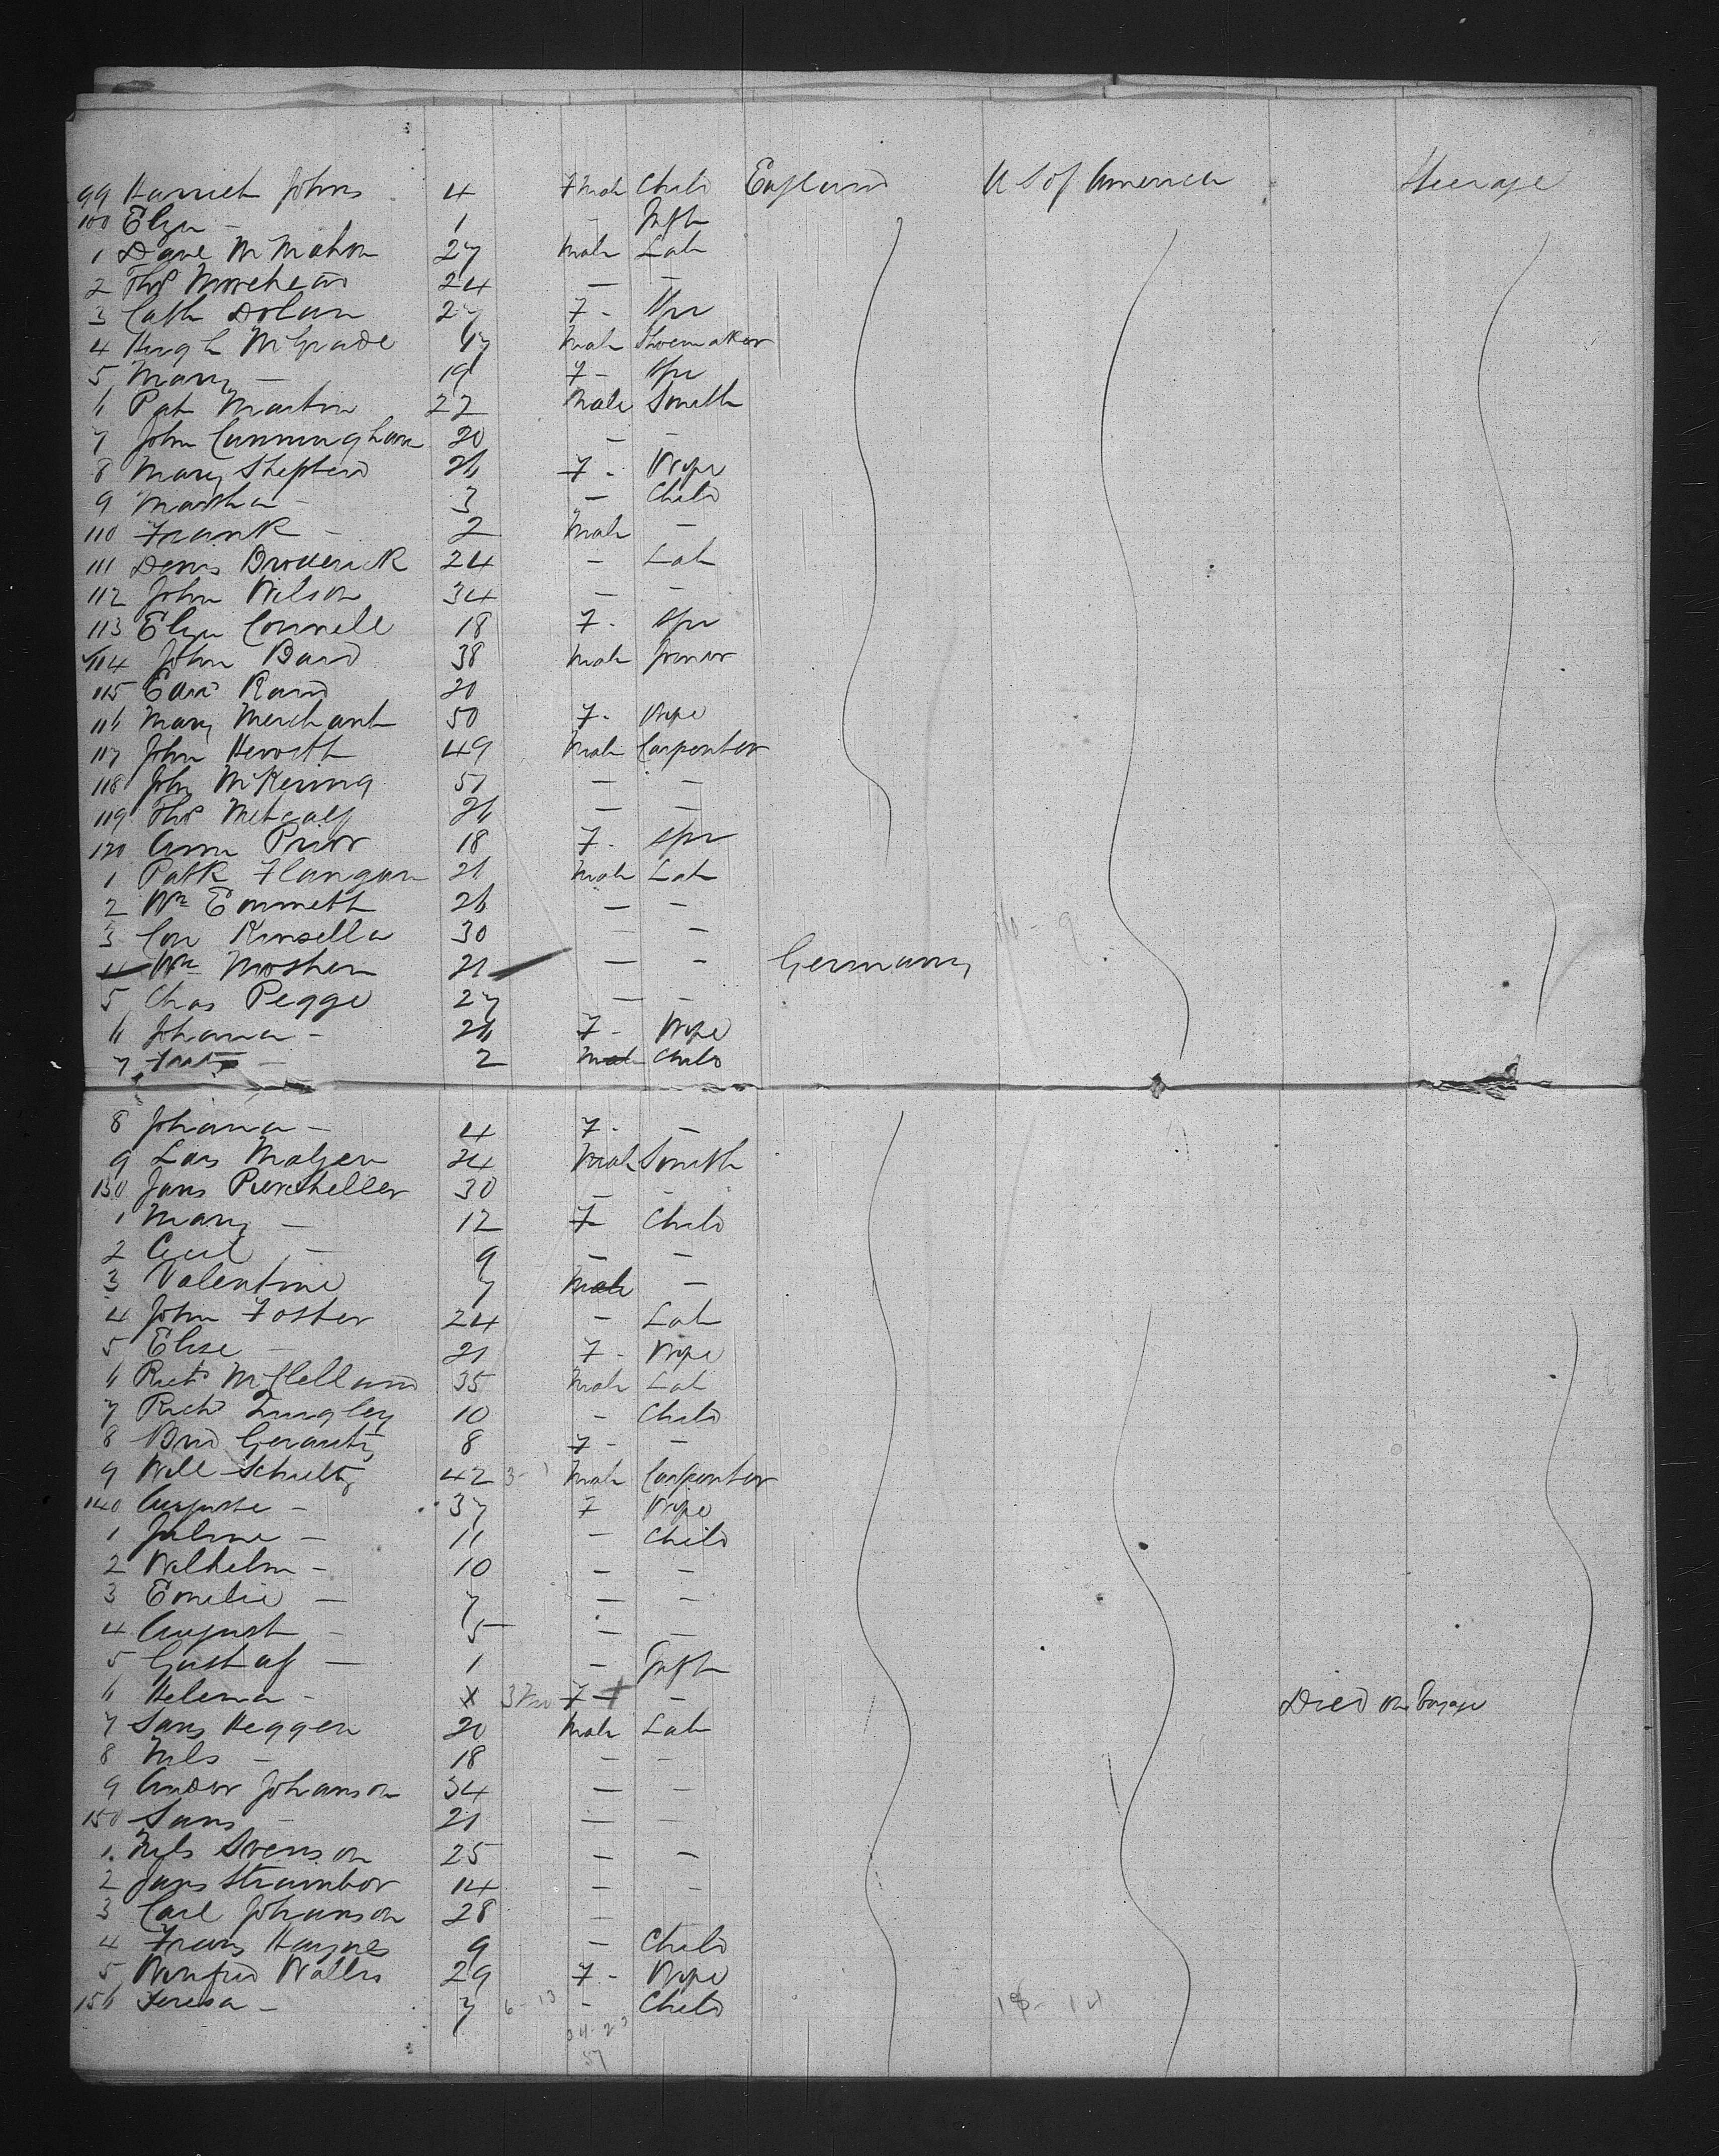 99 Harriet Johns 4 Female Child England U S of America Steerage
100 Eliza - 1 - Inft
1 Dave McMahon 27 Male Lab
2 Thos Morehead 24 - -
3 Cath Dolan 27 F - Spr
4 Hugh McGrade 47 Male Shoemaker
5 Mary - 19 F - Spr
6 Pat Martin 22 Male Smith
7 John Cunningham 20 - -
8 Mary Shepherd 26 F - Wife
9 Martha - 3 - Child
110 Frank - 2 Male -
111 Denis Broderick 24 - Lab
112 John Wilson 34 - -
113 Eliza Connell 18 F - Spr
114 John Baird 38 Male Joiner
115 Edwd Rand 20
116 Mary Merchant 50 F - Wife
117 John Heworth 49 Male Carpenter
118 John McKering 51 - -
119 Thos Metcalf 26 - -
120 Anna Prior 18 F - Spr
1 Patk Flangan 21 Male Lab
2 Wm Emmett 26 - -
3 Con Kinsella 30 - -
4 Wm Moshen 21 - - Germany
5 Chas Pegge 27 - -
6 Johana - 26 F - Wife
7 - 2 Male Child
8 Johana - 4 F - -
9 Lars Malzen 24 Male Smith
130 Jans 30 - -
1 Mary - 12 F Child
2 - 9 - -
3 Valentine 7 Male -
4 John Foster 24 - Lab
5 Elise - 21 F - Wife
6 Richd McClelland 35 Male Lab
7 Richd Tingley 10 - Child
8 Brid Geraity 8 F - -
9 Will Schultz 42 Male Carpenter
140 Auguste - 37 F Wife
1 Juline - 11 - Child
2 Wilhelm - 10 - -
3 Emilie - 7 - -
4 August - 5 - -
5 Gustaf - 1 - Inft
6 Helena - X 3 Mo F - - Died on Voyage
7 Lars Heggen 20 Male Lab
8 Nils - 18 - -
9 Andor Johanson 34 - -
150 Lars - 21 - -
1 Nils Svenson 25 - -
2 Jans Strambor 14 - -
3 Carl Johanson 28 - -
4 Frans Haynes 9 - Child
5 Winifred Wallis 29 F - Wife
156 Teresa - 7 6 - 13 - Child